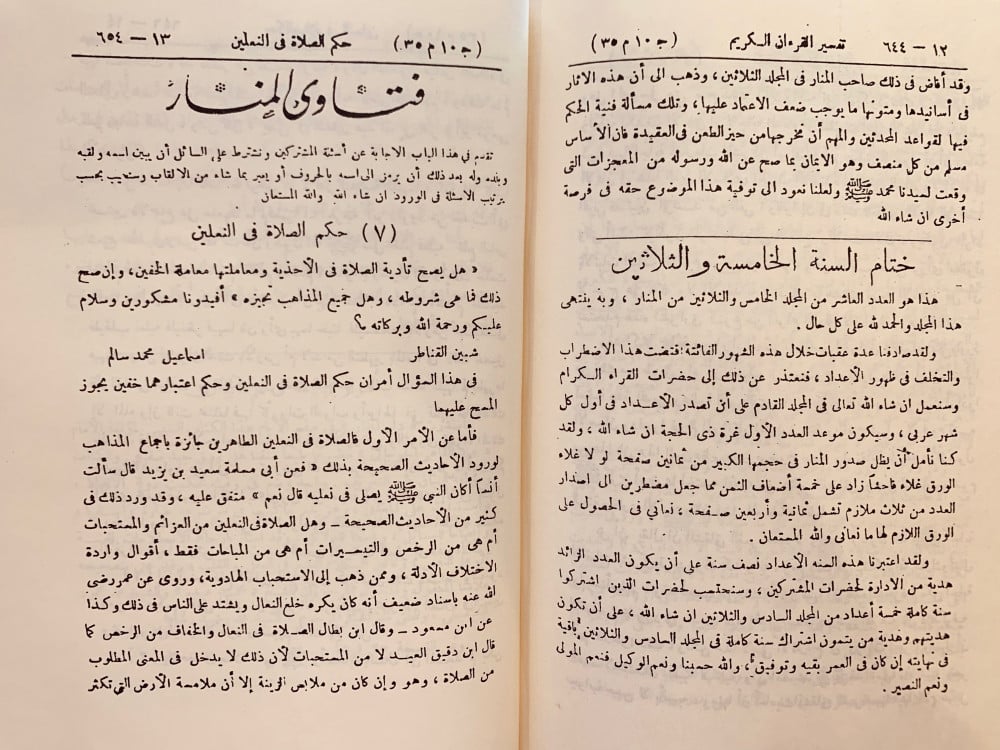 ١٢ — ٦٤٤ تفسير القرءان الكريم (ج ١٠ م ٣٥)
وقد أفاض فى ذلك صاحب المنار فى المجلد الثلاثين، وذهب الى أن هذه الاثار
فى أسانيدها ومتونها ما يوجب ضعف الاعتماد عليها، وتلك مسألة فنية الحكم
فيها لقواعد المحدثين والمهم أن مخرجها من حيز الطعن فى العقيدة فان الأساس
مسلم من كل منصف وهو الايمان بما صح عن الله ورسوله من المعجزات التى
وقعت لسيدنا محمد ﷺ ولعلنا نعود الى توفية هذا الموضوع حقه فى فرصة
أخرى ان شاء الله
ختام السنة الخامسة والثلاثين
هذا هو العدد العاشر من المجلد الخامس والثلاثين من المنار، وبه ينتهى
هذا المجلد والحمد لله على كل حال.
ولقد صادفنا عدة عقبات خلال هذه الشهور الفائتة؛ قتضت هذا الاضطراب
والتخلف فى ظهور الأعداد، فنعتذر عن ذلك إلى حضرات القراء الكرام
وسنعمل ان شاء الله تعالى فى المجلد القادم على أن تصدر الأعداد فى أول كل
شهر عربى، وسيكون موعد العدد الأول غرة ذى الحجة ان شاء الله، ولقد
كنا نأمل أن يظل صدور المنار فى حجمها الكبير من ثمانين صفحة لو لا غلاء
الورق غلاء فاحشا زاد على خمسة أضعاف الثمن مما جعل مضطرين الى اصدار
العدد من ثلاث ملازم تشمل ثمانية وأربعين صفحة، نعانى فى الحصول على
الورق اللازم لها ما نعانى والله المستعان.
ولقد اعتبرنا هذه السنه الأعداد نصف سنة على أن يكون العدد الزائد
هدية من الادارة لحضرات المشتركين، وسنحتسب لحضرات الذين اشتركوا
سنة كاملة خمسة أعداد من المجلد السادس والثلاثين ان شاء الله، على أن تكون
هديتهم وهدية من يتمون اشتراك سنة كاملة فى المجلد السادس والثلاثين باقية
فى نهايته إن كان فى العمر بقيه وتوفيق، والله حسبنا ونعم الوكيل فنعم المولى
ونعم النصير.
(ج ١٠ م ٣٥) حكم الصلاة فى النعلين ١٣ — ٦٥٤
فتاوى المنار
تقدم فى هذا الباب الاجابة عن أسئلة المشتركين ونشترط على السائل أن يبين اسمه ولقبه
وبلده وله بعد ذلك أن يرمز الى اسمه بالحروف أو يعبر بما شاء من الالقاب وسنجيب بحسب
ترتيب الاسئلة فى الورود ان شاء الله والله المستعان
(٧) حكم الصلاة فى النعلين
« هل يصح تأدية الصلاة فى الأحذية ومعاملتها معاملة الخفين، وإن صح
ذلك فما هى شروطه، وهل جميع المذاهب تجيزه » أفيدونا مشكورين وسلام
عليكم ورحمة الله وبركاته ؟
شبين القناطر اسماعيل محمد سالم
فى هذا السؤال أمران حكم الصلاة فى النعلين وحكم اعتبارهما خفين يجوز
المسح عليهما
فأما عن الأمر الأول فالصلاة فى النعلين الطاهرين جائزة باجماع المذاهب
لورود الأحاديث الصحيحة بذلك « فعن أبى مسلمة سعيد بن يزيد قال سألت
أنسا أكان النبى ﷺ يصلى فى نعليه قال نعم » متفق عليه، وقد ورد ذلك فى
كثير من الأحاديث الصحيحة — وهل الصلاة فى النعلين من العزائم والمستحبات
أم هى من الرخص والتيسيرات أم هى من المباحات فقط، أقوال واردة
الاختلاف الأدلة، وممن ذهب إلى الاستحباب الهادوية، وروى عن عمر رضى
الله عنه باسناد ضعيف أنه كان يكره خلع النعال ويشتد على الناس فى ذلك وكذا
عن ابن مسعود — وقال ابن بطال الصلاة فى النعال والخفاف من الرخص كما
قال ابن دقيق العيد لا من المستحبات لأن ذلك لا يدخل فى المعنى المطلوب
من الصلاة، وهو وإن كان من ملابس الزينة إلا أن ملامسة الأرض التى تكثر